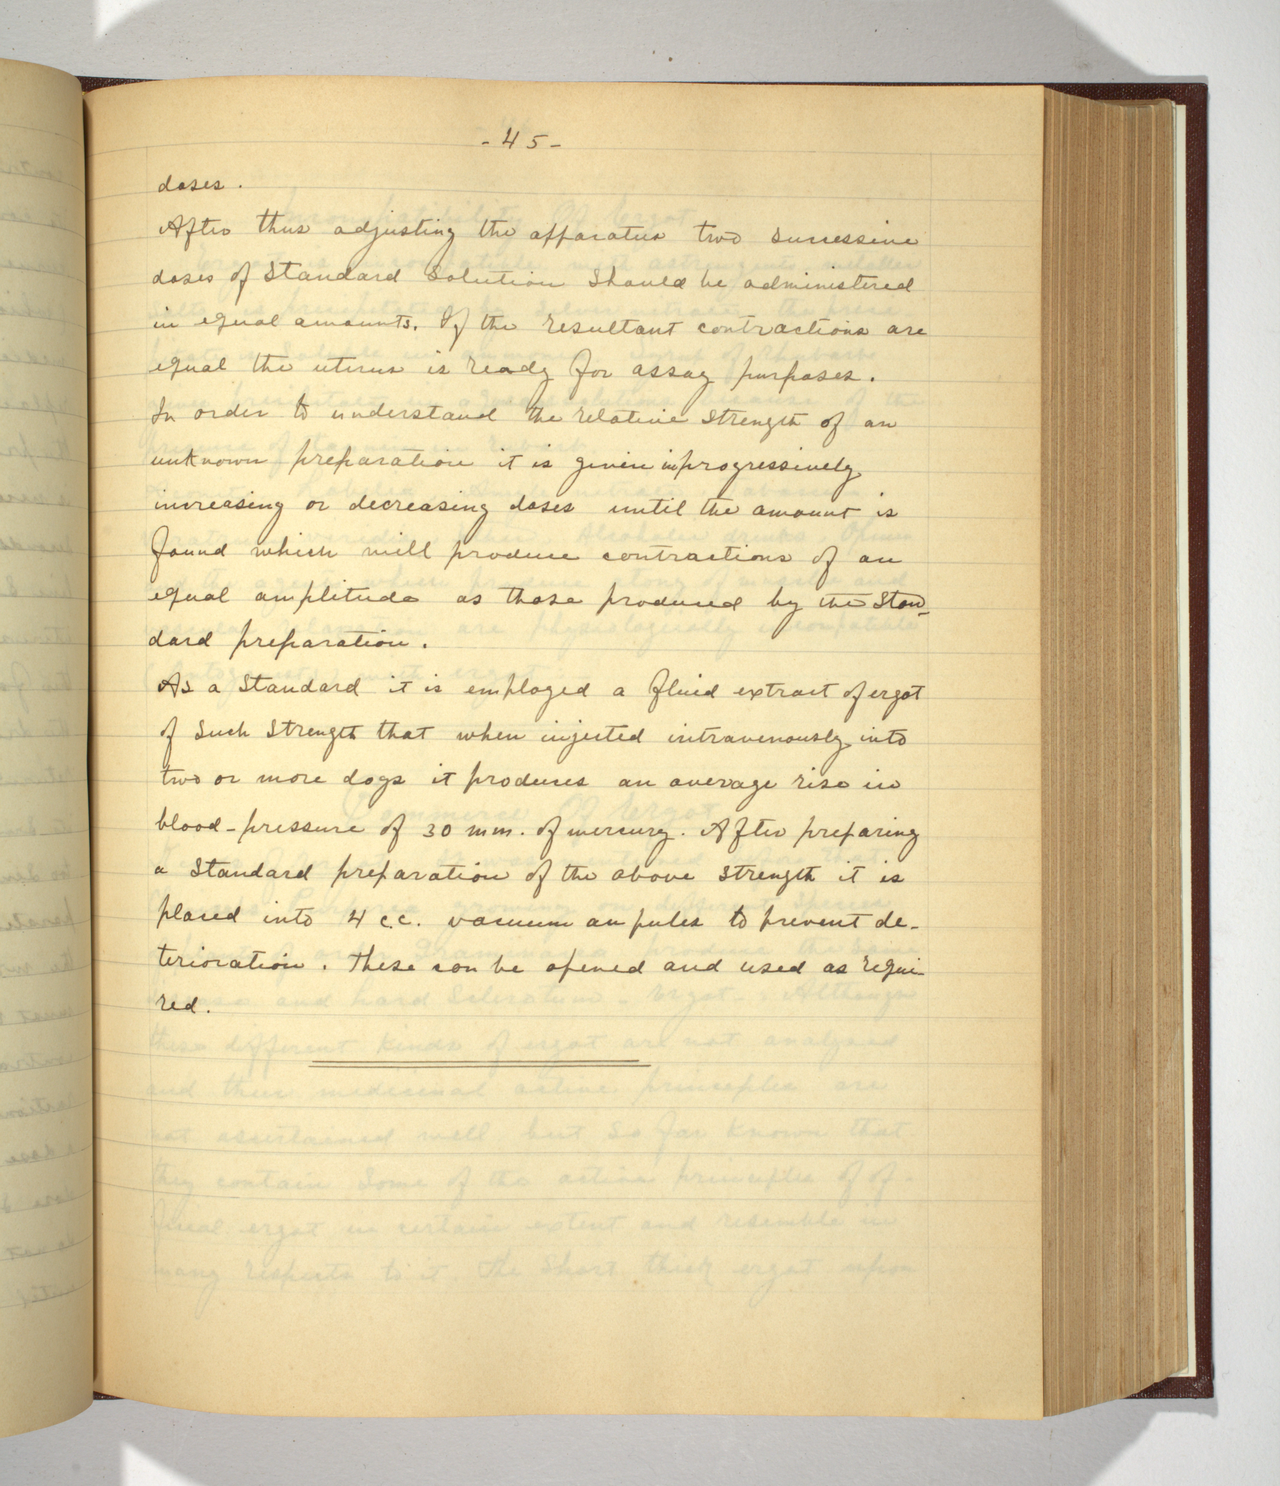 - 45 -
doses.
After thus adjusting the apparatus two successive
doses of Standard Solution Should be administered
in equal amounts. If the resultant contractions are
equal the uterus is ready for assay purposes.
In order to understand the relative Strength of an
unknown preparation it is given in progressively
increasing or decreasing doses until the amount is
found which will produce contractions of an
equal amplitude as those produced by the Stan-
dard preparation.
As a Standard it is employed a fluid extract of ergot
of Such Strength that when injected intravenously into
two or more dogs it produces an average rise in
blood-pressure of 30 mm. of mercury. After preparing
a Standard preparation of the above Strength it is
placed into 4 c.c. vacuum ampules to prevent de-
terioration. These can be opened and used as requi
red.